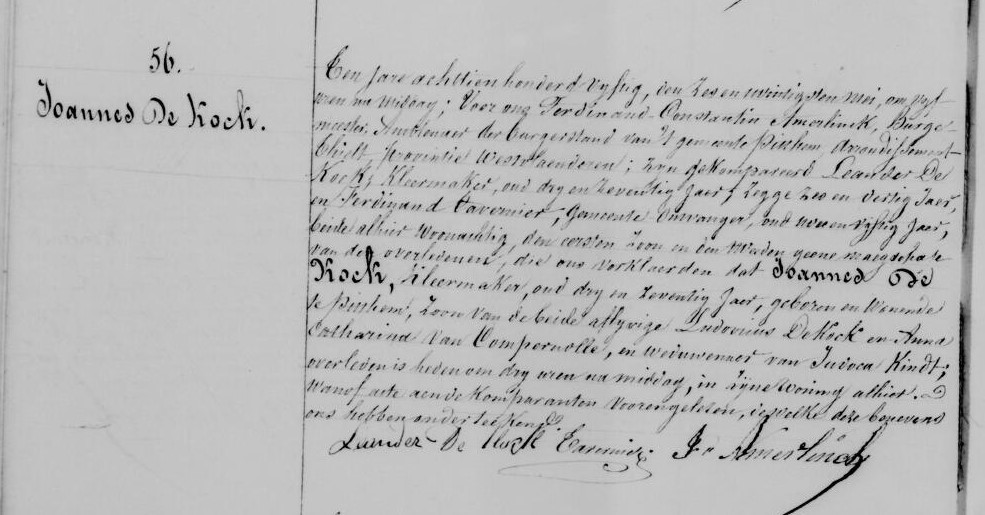 56.
Joannes De Kock.
Een jare achttien honderd vyftig, den zes en twintigsten mei, om vyf
uren na middag; Voor ons Ferdinand Constantin Amerlinck, Burge-
meester, Ambtenaer der burgerstand van 't gemeente Pitthem, Arrondissement
Thielt, provintie Westvlaenderen; zyn gekompareerd Leander De
Kock, Kleermaker, oud dry en zeventig jaer, zegge zes en dertig Jaer,
en Ferdinand Tavernier, Gemeente Ontvanger, oud en vyftig jaer,
beide alhier woonachtig, den eersten zoon en den tweeden geene maegschap
van de overledenen, die ons verklaerden dat Joannes De
Kock, kleermaker, oud dry en zeventig jaer, geboren en wonende
te Pitthem, zoon van de beide aflyvige Ludovicus De Kock en Anna
Catharina Van Compernolle, en weduwenaer van Judoca Kindt;
overleden is heden om dry uren na middag, in zyne woning alhier.
Wanof acte aen de komparanten voorengelezen, deze benevens
ons hebben onderteekend.
Leander De Kock Tavernier F. Amerlinck